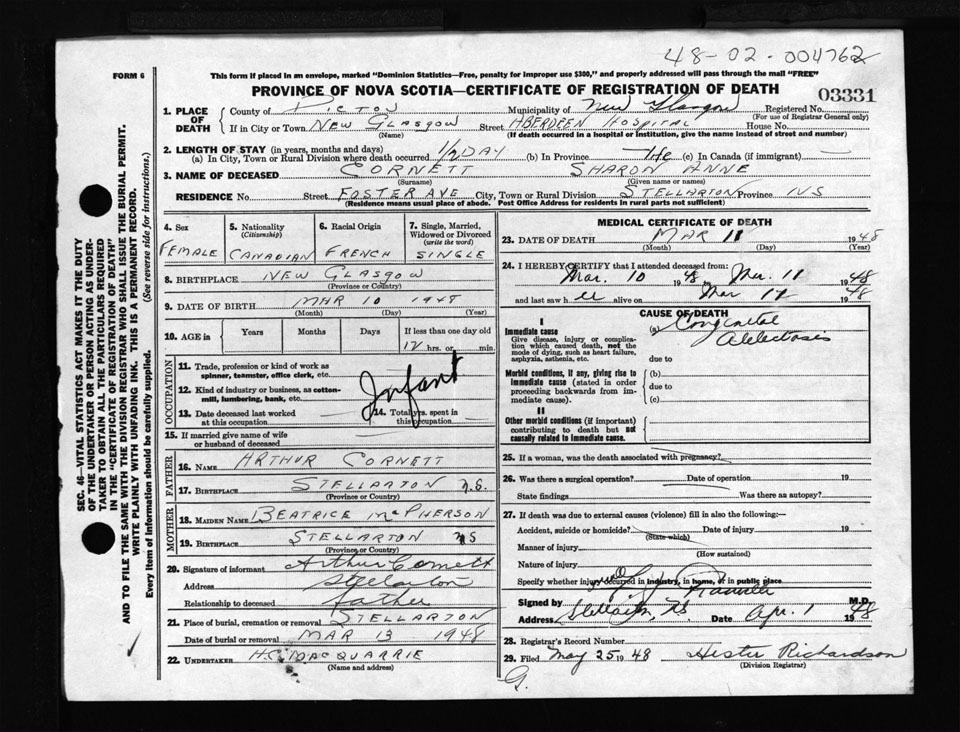 48-02-004762
FORM 6
This form if placed in an envelope, marked "Dominion Statistics—Free, penalty for improper use $300," and properly addressed will pass through the mail "FREE"
PROVINCE OF NOVA SCOTIA—CERTIFICATE OF REGISTRATION OF DEATH
03331
1. PLACE OF DEATH
County of PICTOU Municipality of New Glasgow Registered No.
(For use of Registrar General only)
If in City or Town NEW GLASGOW Street ABERDEEN HOSPITAL House No.
(Name) (If death occurred in a hospital or institution, give the name instead of street and number)
2. LENGTH OF STAY (in years, months and days)
(a) In City, Town or Rural Division where death occurred 1/2 DAY (b) In Province life (c) In Canada (if immigrant) —
3. NAME OF DECEASED CORNETT SHARON ANNE
(Surname) (Given name or names)
RESIDENCE No. Street FOSTER AVE City, Town or Rural Division STELLARTON Province NS
(Residence means usual place of abode. Post Office Address for residents in rural parts not sufficient)
4. Sex FEMALE
5. Nationality (Citizenship) CANADIAN
6. Racial Origin FRENCH
7. Single, Married, Widowed or Divorced (write the word) SINGLE
8. BIRTHPLACE NEW GLASGOW
(Province or Country)
9. DATE OF BIRTH MAR 10 1948
(Month) (Day) (Year)
10. AGE in Years Months Days If less than one day old
12 hrs. or min.
OCCUPATION
11. Trade, profession or kind of work as spinner, teamster, office clerk, etc.
12. Kind of industry or business, as cotton-mill, lumbering, bank, etc.
Infant
13. Date deceased last worked at this occupation
14. Total yrs. spent in this occupation
15. If married give name of wife or husband of deceased
FATHER
16. NAME ARTHUR CORNETT
17. BIRTHPLACE STELLARTON N.S.
(Province or Country)
MOTHER
18. MAIDEN NAME BEATRICE McPHERSON
19. BIRTHPLACE STELLARTON NS
(Province or Country)
20. Signature of informant Arthur Cornett
Address Stellarton
Relationship to deceased father
21. Place of burial, cremation or removal STELLARTON
Date of burial or removal MAR 13 1948
22. UNDERTAKER H.C. MACQUARRIE
(Name and address)
MEDICAL CERTIFICATE OF DEATH
23. DATE OF DEATH MAR 11 1948
(Month) (Day) (Year)
24. I HEREBY CERTIFY that I attended deceased from:
Mar. 10 1948 to Mar. 11 1948
and last saw h er alive on Mar 11 1948
CAUSE OF DEATH
I
Immediate cause
Give disease, injury or complication which caused death, not the mode of dying, such as heart failure, asphyxia, asthenia, etc.
(a) Congenital
Atelectasis
due to
Morbid conditions, if any, giving rise to immediate cause (stated in order proceeding backwards from immediate cause).
(b)
due to
(c)
II
Other morbid conditions (if important) contributing to death but not causally related to immediate cause.
25. If a woman, was the death associated with pregnancy?
26. Was there a surgical operation? Date of operation 19
State findings Was there an autopsy?
27. If death was due to external causes (violence) fill in also the following:—
Accident, suicide or homicide? Date of injury 19
(State which)
Manner of injury
(How sustained)
Nature of injury
Specify whether injury occurred in industry, in home, or in public place
Signed by M.D.
Address Stellarton, NS Date Apr. 1 1948
28. Registrar's Record Number
29. Filed May 25 1948 Hester Richardson
(Division Registrar)
G.
SEC. 46—VITAL STATISTICS ACT MAKES IT THE DUTY
OF THE UNDERTAKER OR PERSON ACTING AS UNDER-
TAKER TO OBTAIN ALL THE PARTICULARS REQUIRED
IN THE "CERTIFICATE OF REGISTRATION OF DEATH"
AND TO FILE THE SAME WITH THE DIVISION REGISTRAR WHO SHALL ISSUE THE BURIAL PERMIT.
WRITE PLAINLY WITH UNFADING INK. THIS IS A PERMANENT RECORD.
Every item of information should be carefully supplied. (See reverse side for instructions.)